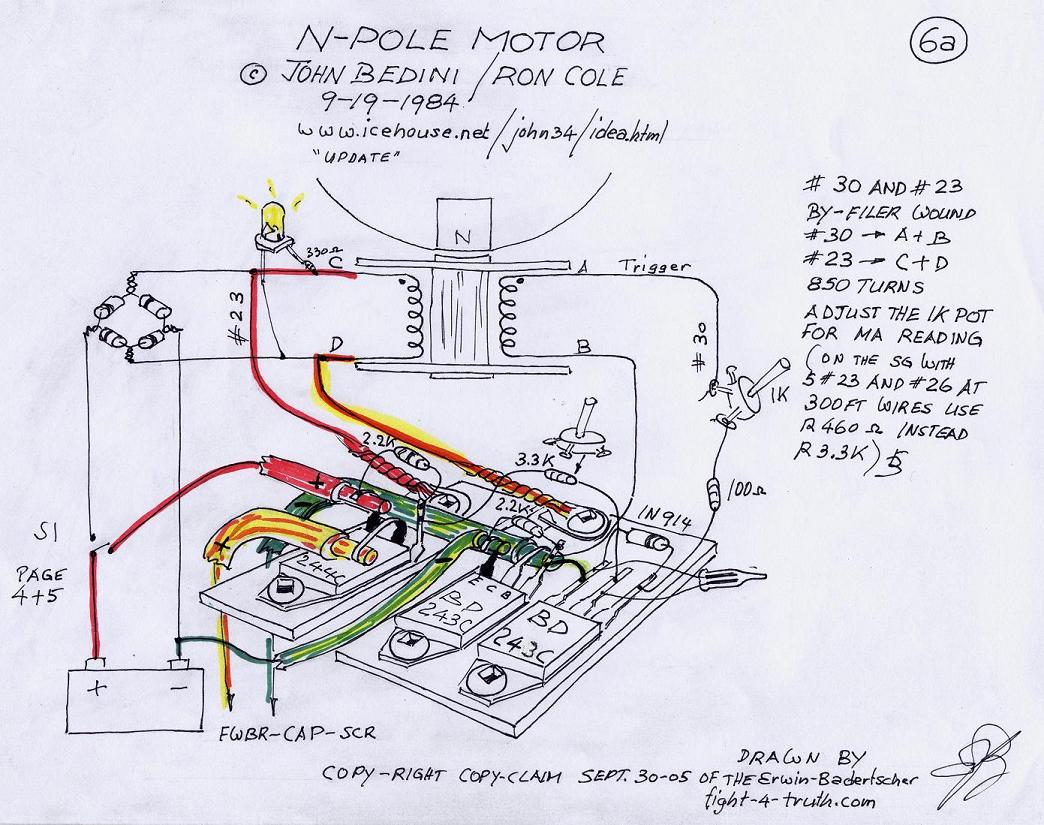 6a
N-POLE MOTOR
© JOHN BEDINI / RON COLE
9-19-1984
www.icehouse.net/john34/idea.html
"UPDATE"
# 30 AND # 23
BY-FILER WOUND
#30 → A+B
#23 → C+D
850 TURNS
ADJUST THE 1K POT
FOR MA READING
(ON THE SG WITH
5 #23 AND #26 AT
300FT WIRES USE
R 460 Ω INSTEAD
R 3.3K)
N
330Ω
C
A
Trigger
#23
D
B
#30
1K
2.2K
3.3K
2.2K
100Ω
1N914
+
S1
PAGE
4+5
+
244C
-
E C B
BD
243C
BD
243C
+ -
FWBR-CAP-SCR
DRAWN BY
COPY-RIGHT COPY-CLAIM SEPT. 30-05 OF THE Erwin-Badertscher
fight-4-truth.com